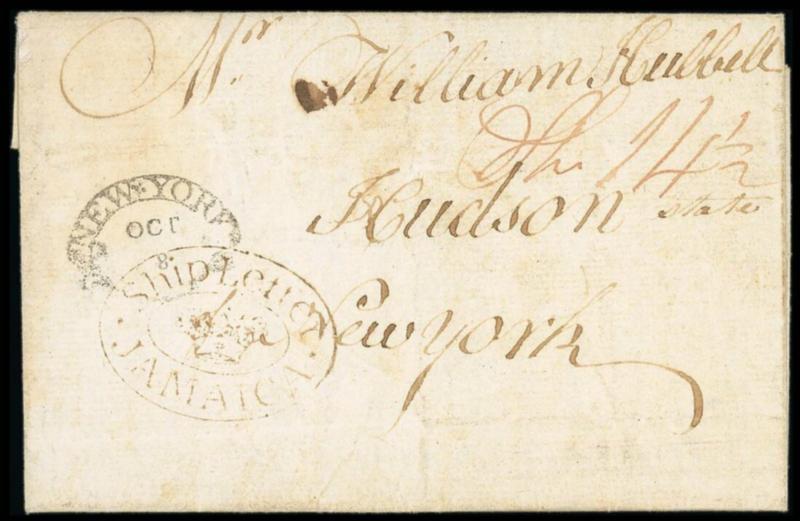 Mr William Hubbell
Sh 14 1/2
Hudson
state
New york
NEW*YORK
OCT
8
Ship Letter
JAMAICA